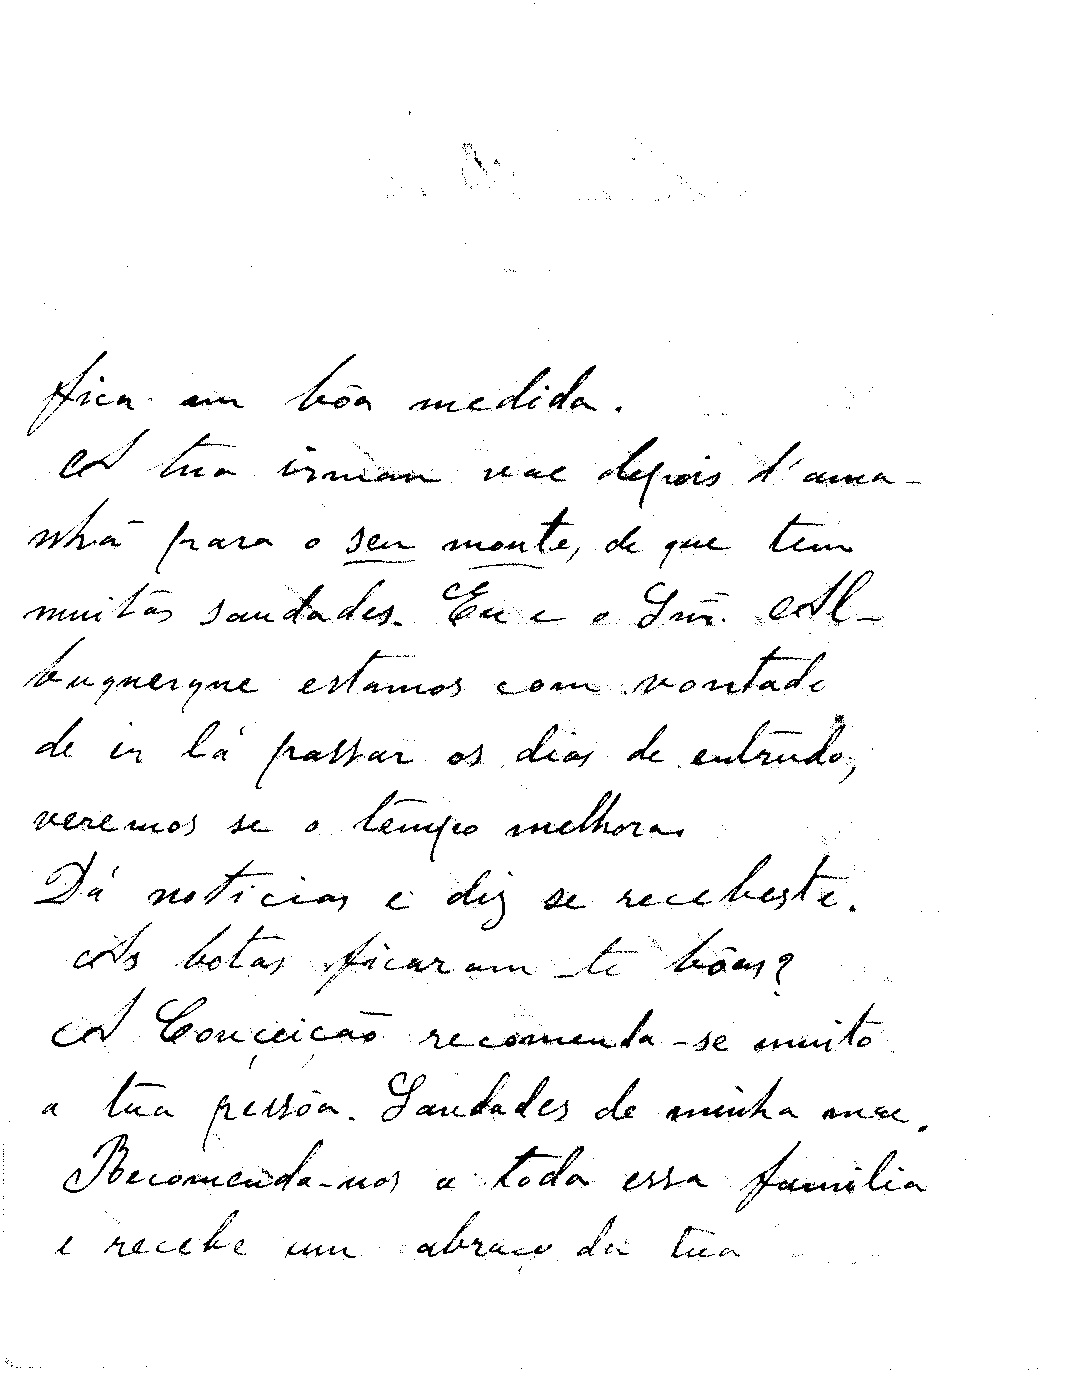 fica em bôa medida.
A tua irman vae depois d'ama-
nhã para o seu monte, de que tem
muitas saudades. Eu e o Snr. Al-
buquerque estamos com vontade
de ir lá passar os dias de entrudo,
veremos se o tempo melhora.
Dá noticias e diz se recebeste.
As botas ficaram-te bôas?
A Conceição recomenda-se muito
a tua pessôa. Saudades de minha mae.
Recomenda-nos a toda essa familia
e recebe um abraço da tua